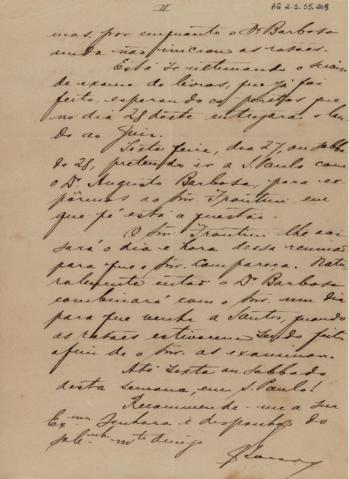 II
AG 2.2.05.209
mas, por emquanto o Dr Barbosa
ainda não iniciou as rasões.
Está se ultimando o
de exame de livros, que já foi
feito, esperando os peritos que
no dia 28 deste entregarão o lau
do ao Juiz.
Sexta feira, dia 27, ou Sabba
do 28, pretendo ir a S. Paulo com
o Dr. Augusto Barbosa, para ex
pôrmos ao Snr. Trontini em
que pé está a questão.
O Snr. Trontini lhe avi
sará o dia e hora dessa reunião
para que o Snr. compareça. Natu
ralmente então o Dr Barbosa
combinará com o Snr. um dia
para que venha a Santos, quando
as rasões estiverem sendo feitas
afim de o Snr. as examinar.
Até Sexta ou Sabbado
desta semana, em S. Paulo!
Recommende-me a sua
Ex.ma Senhora e disponha do
mto amigo